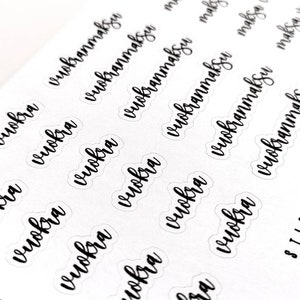 vuokranmaksu
vuokranmaksu
vuokranmaksu
vuokranmaksu
vuokranmaksu
vuokranmaksu
vuokra
vuokra
vuokra
vuokra
vuokra
vuokra
vuokra
vuokra
vuokra